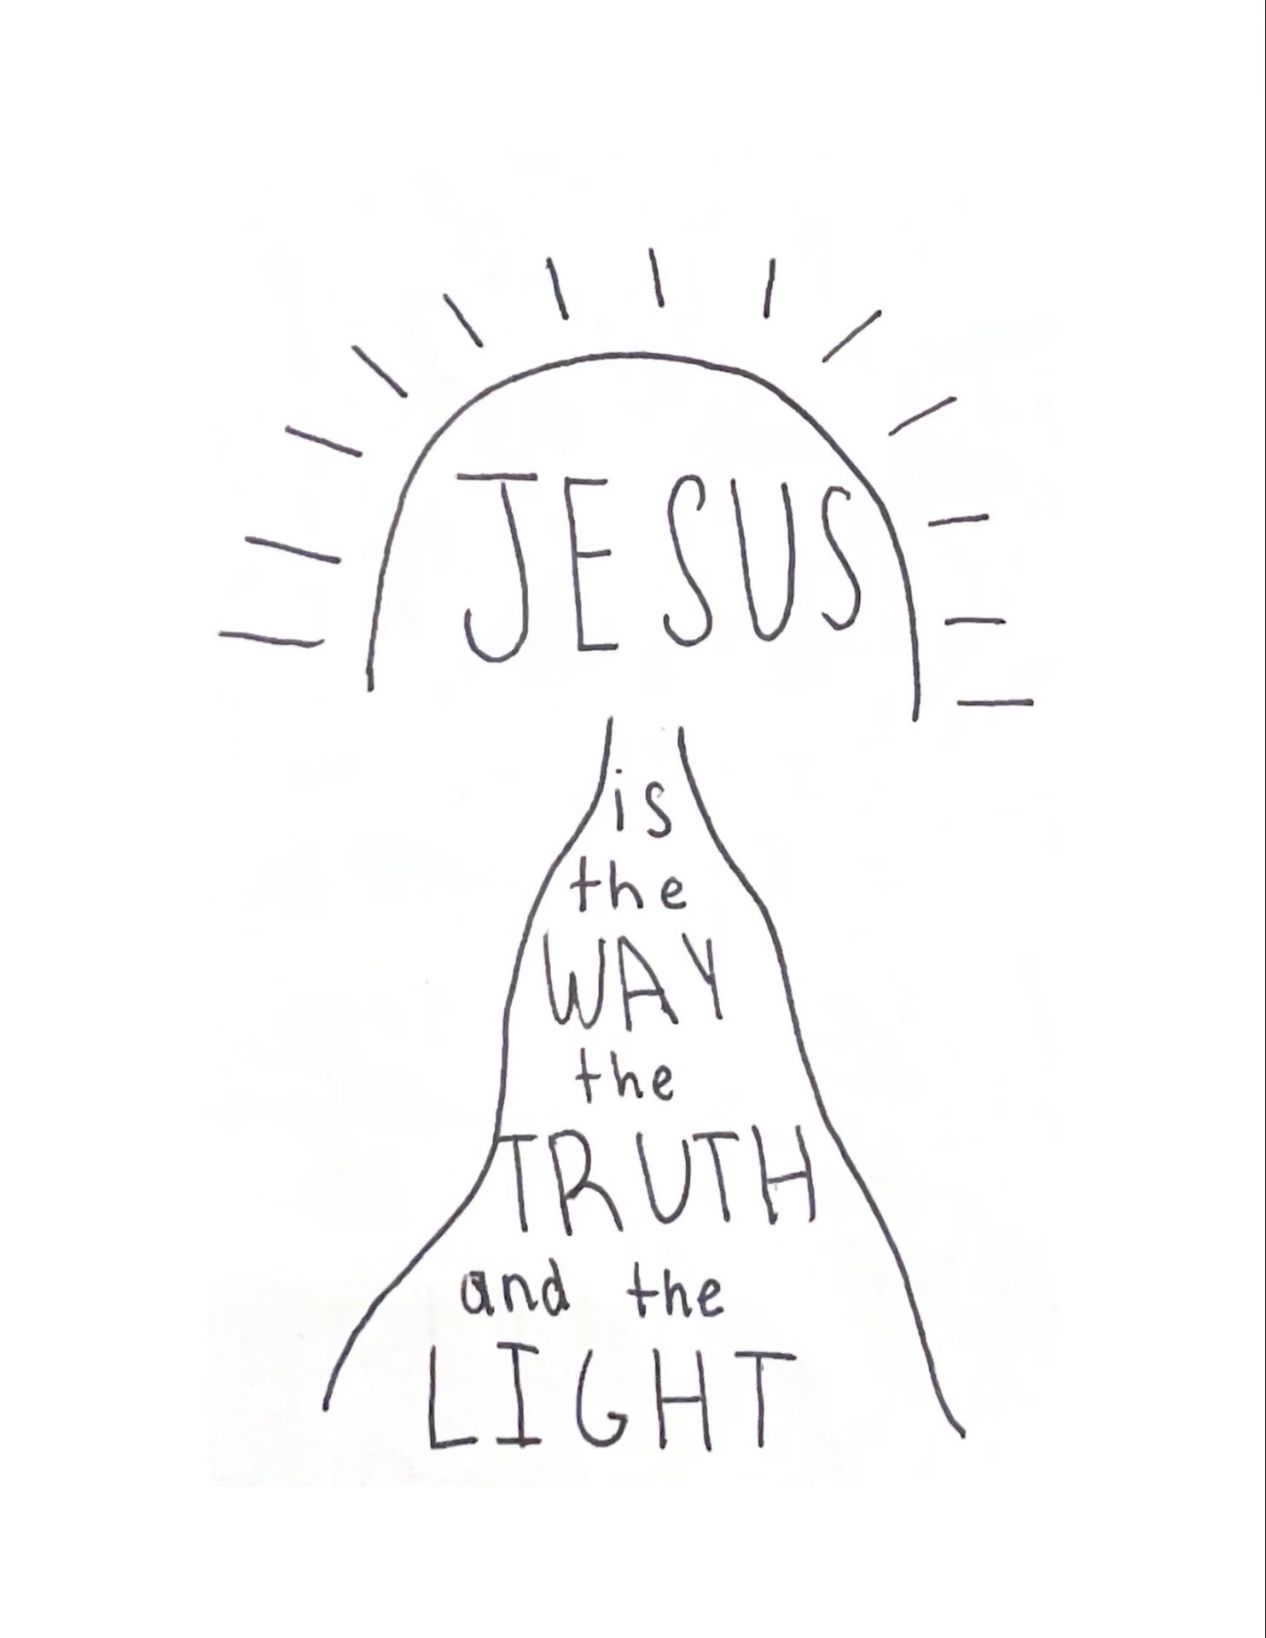 JESUS
is
the
WAY
the
TRUTH
and the
LIGHT